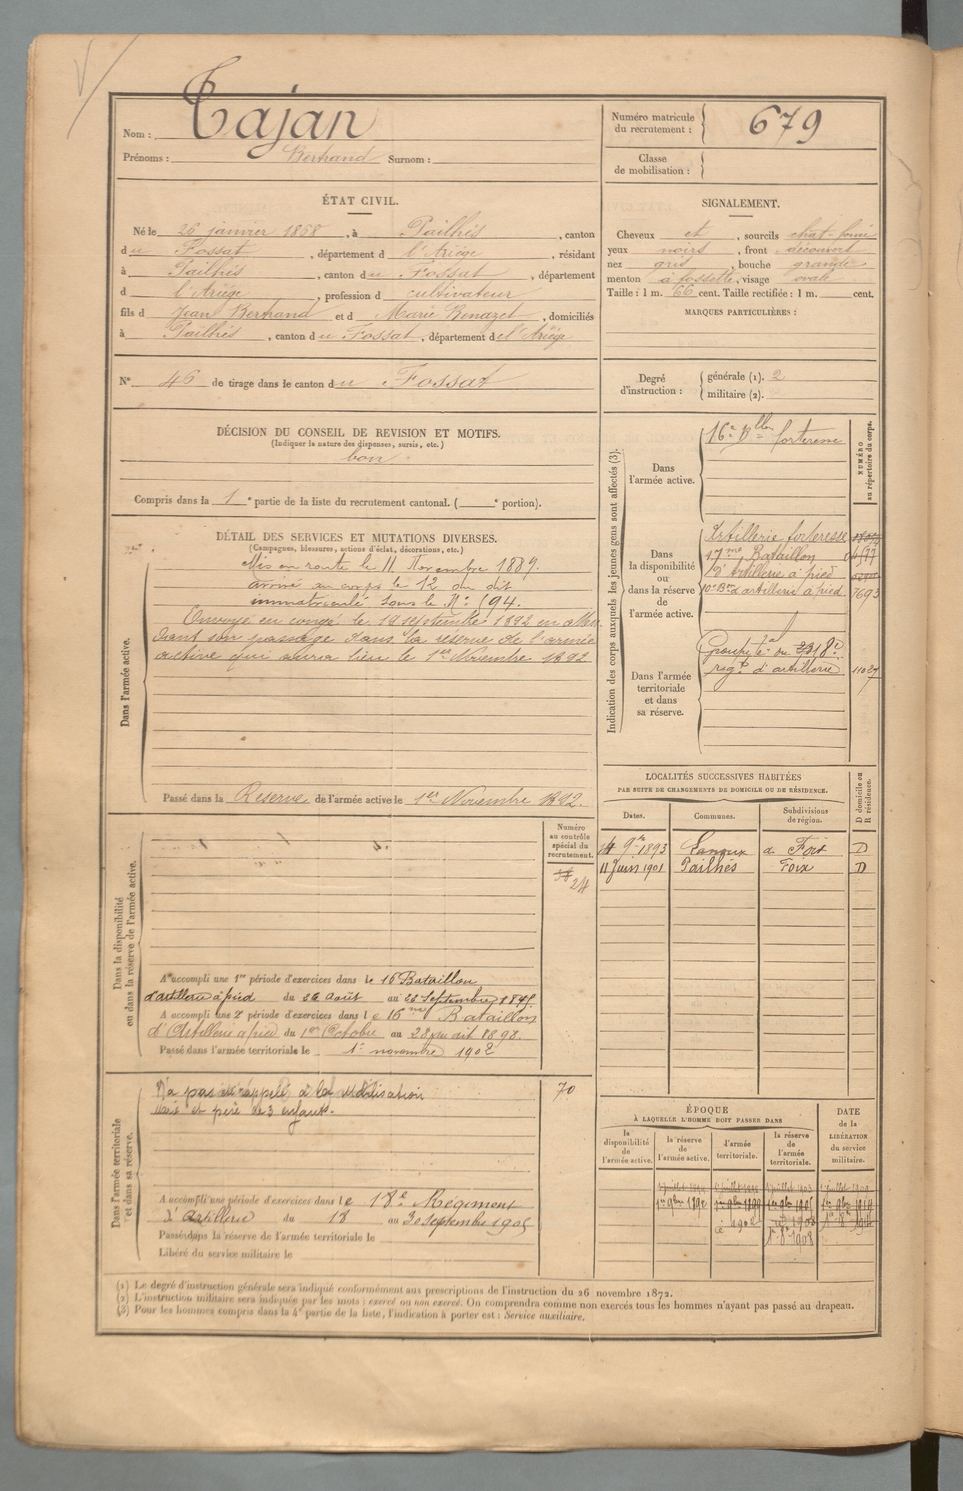 Nom : Tajan
Prénoms : Bertrand Surnom :
Numéro matricule du recrutement : 679
Classe de mobilisation :
ÉTAT CIVIL.
Né le 26 janvier 1868, à Pailhès, canton
du Fossat, département d l'Ariège, résidant
à Pailhès, canton du Fossat, département
d l'Ariège, profession d cultivateur
fils d Jean Bertrand et d Marie Benazet, domiciliés
à Pailhès, canton du Fossat, département de l'Ariège
N° 46 de tirage dans le canton du Fossat
SIGNALEMENT.
Cheveux et, sourcils chat-foncé
yeux noirs, front découvert
nez gros, bouche grande
menton à fossette, visage ovale
Taille : 1 m. 66 cent. Taille rectifiée : 1 m. cent.
MARQUES PARTICULIÈRES :
Degré d'instruction : générale (1). 2
militaire (2).
DÉCISION DU CONSEIL DE REVISION ET MOTIFS.
(Indiquer la nature des dispenses, sursis, etc.)
bon
Compris dans la 1e partie de la liste du recrutement cantonal. ( e portion).
DÉTAIL DES SERVICES ET MUTATIONS DIVERSES.
(Campagnes, blessures, actions d'éclat, décorations, etc.)
Dans l'armée active.
Mis en route le 11 Novembre 1889.
arrivé au corps le 12 du dit
immatriculé sous le N°: 194.
Envoyé en congé le 19 septembre 1892 en atten
dant son passage dans la réserve de l'armée
active qui aura lieu le 1er Novembre 1892
Passé dans la Réserve de l'armée active le 1er Novembre 1892.
Indication des corps auxquels les jeunes gens sont affectés (3).
NUMÉRO au répertoire du corps.
Dans l'armée active.
16e Bllon forteresse
Dans la disponibilité ou dans la réserve de l'armée active.
Artillerie forteresse
17me Bataillon
d'Artillerie à pied
10e Bon d'artillerie à pied 7693
Dans l'armée territoriale et dans sa réserve.
Groupe tal du 18e
régt d'artillerie 11027
LOCALITÉS SUCCESSIVES HABITÉES
PAR SUITE DE CHANGEMENTS DE DOMICILE OU DE RÉSIDENCE.
D domicile ou R résidence.
Dates. Communes. Subdivisions de région.
14 9bre 1893 Lanoux de Foix D
11 Juin 1901 Pailhès Foix D
Dans la disponibilité ou dans la réserve de l'armée active.
Numéro au contrôle spécial du recrutement.
24
A accompli une 1re période d'exercices dans le 16 Bataillon
d'artillerie à pied du 26 Août au 22 Septembre 1895.
A accompli une 2e période d'exercices dans le 16me Bataillon
d'Artillerie à pied du 1er Octobre au 28 du dit 1898.
Passé dans l'armée territoriale le 1er novembre 1902
Dans l'armée territoriale et dans sa réserve.
N'a pas été rappelé à la mobilisation 70
marié et père de 3 enfants.
A accompli une période d'exercices dans le 18e Régiment
d'Artillerie du 18 au 30 septembre 1905
Passé dans la réserve de l'armée territoriale le
Libéré du service militaire le
ÉPOQUE
À LAQUELLE L'HOMME DOIT PASSER DANS
DATE de la LIBÉRATION du service militaire.
la disponibilité de l'armée active.
la réserve de l'armée active.
l'armée territoriale.
la réserve de l'armée territoriale.
1er 9bre 1892
(1) Le degré d'instruction générale sera indiqué conformément aux prescriptions de l'instruction du 26 novembre 1872.
(2) L'instruction militaire sera indiquée par les mots : exercé ou non exercé. On comprendra comme non exercés tous les hommes n'ayant pas passé au drapeau.
(3) Pour les hommes compris dans la 4e partie de la liste, l'indication à porter est : Service auxiliaire.